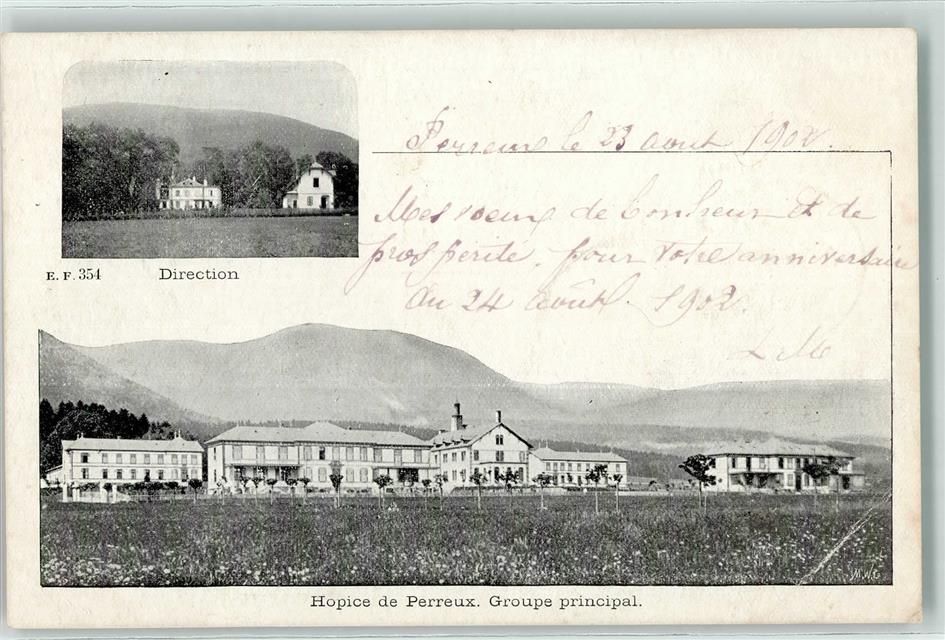 Perreux le 23 août 1902.
Mes voeux de bonheur et de
prospérité, pour votre anniversaire
du 24 août 1902.
E. F. 354 Direction
M.W.
Hopice de Perreux. Groupe principal.